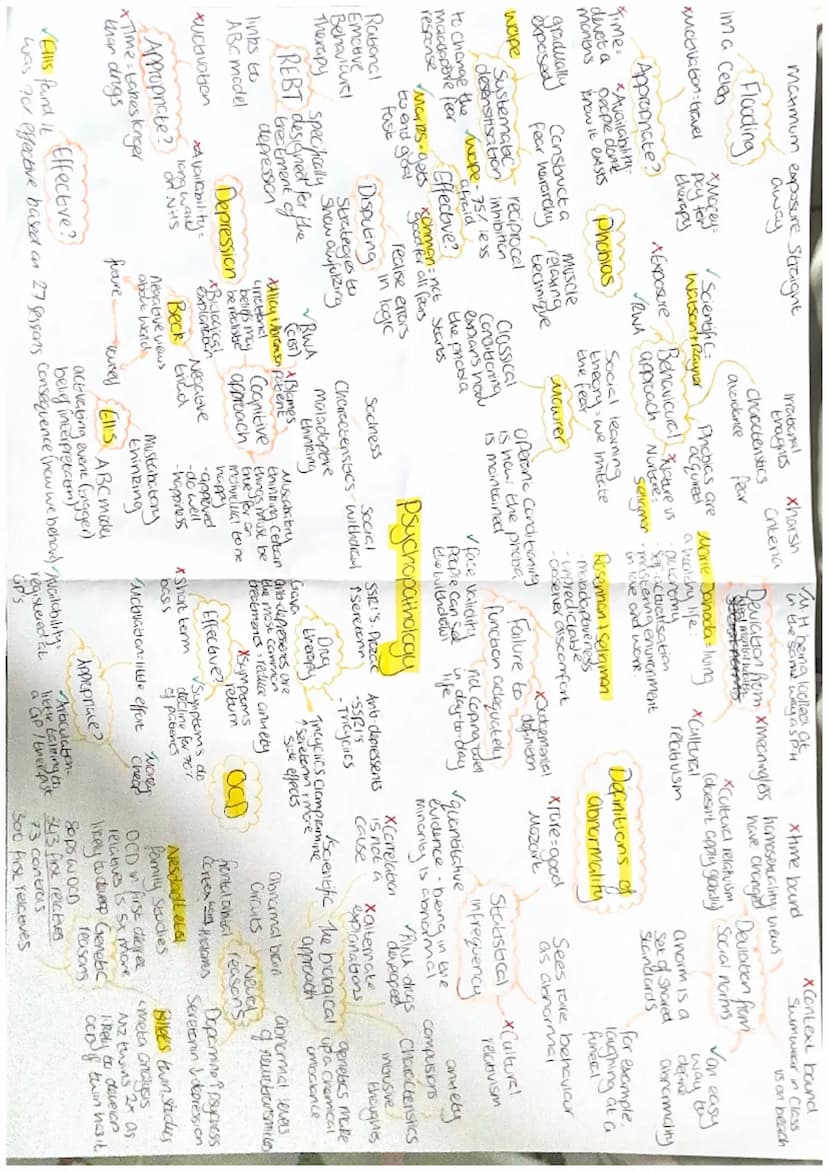 Psychopathology
Phobias
Flooding
maximum exposure straight
away
im a celeb
Appropriate?
xMotivation=travel
xMoney=
pay for
therapy
xTime=
devote
moments
xAvailability-
people dont
know it exists
Systematic
desensitisation
Wolpe
gradually
exposed
to change the
maladaptive fear
response
Construct a
fear hierarchy
-reciprocal
inhibition
muscle
relaxing
technique
Effective?
✓Wolpe - 75% less
afraid
xOhman=not
good for all fears
Behavioural
approach
✓Scientific=
Watson+Rayner
xExposure
✓RWA
Phobias are
acquired
xNature vs
Nurture=
Seligman
Characteristics
Irrational
thoughts
avoidance
fear
Social learning
theory=we imitate
the fear
Mowrer
Classical
Conditioning
explains how
the phobia
starts
operant conditioning
is how the phobia
is maintained
Depression
REBT
Rational
Emotive
Behavioural
Therapy
links to
ABC model
specifically
designed for the
treatment of
depression
Disputing
Strategies to
show awfulizing
realise errors
in logic
Appropriate?
xMotivation
xTime=takes longer
than drugs
xAvailability=
long wait
on NHS
Effective?
✓Ellis found it
was 90% effective based on 27 sessions
Cognitive
approach
✓RWA
(CBT)
xBlames
patient
xAlloy+Abramson
irrational
beliefs may
be realistic
xBiological
explanation
Beck
Negative
triad
Negative views
about world
future
Ellis
ABC model
activating event (trigger)
being interpreted
consequence (how we behave)
Mustabatory
thinking
Musabatory
thinking certain
things must be
true for an
individual to be
happy
-approved
-do well
-happiness
Characteristics
Sadness
Social
withdrawal
maladaptive
thinking
Definitions of
abnormality
Deviation from
ideal mental health
xharsh
criteria
✓MH being looked at
in the same way as PH
Marie Jahoda=living
a healthy life:
-autonomy
-self actualisation
-mastering environment
in love and work
xCultural
relativism
Deviation from
Social norms
xmeaningless
xtime bound
homosexuality views
have changed
xCultural relativism
(doesnt apply globally)
xContext bound
Swimwear in class
vs on beach
✓an easy
way to
define
abnormality
a norm is a
set of shared
standards
For example:
laughing at a
funeral
Failure to
function adequately
Rosenhan+Seligman
-maladaptiveness
-unpredictable
-observer discomfort
not coping well
in day to day
life
✓face validity
people can see
the withdrawal
Statistical
infrequency
Sees rare behaviour
as abnormal
xrare=good
Mozart
✓quantitative
evidence - being in the
minority is abnormal
xCultural
relativism
OCD
Drug
therapy
Anti depressents
-SSRI's
-Tricyclics
SSRI's=Prozac
↑Serotonin
Tricyclics Clomipramine
↑serotonin+more
side effects
Anti-depressents are
the most common
treatments: reduce anxiety
Effective?
xSymptoms
return
xshort term
basis
✓Symptoms do
decline for 70%
of patients
Appropriate?
✓Motivation=little effort
✓Money
cheap
✓Availability=
registered at
GP's
✓Articulation-
little talking to
a GP/therapist
The biological
approach
✓Scientific
xCorrelation
is not a
cause
xalternate
explanations
✓RWA-drugs
developed
Characteristics
anxiety
compulsions
intrusive
thoughts
genetics make
up a chemical
imbalance
Neural
reasons
Abnormal brain
Circuits
abnormal levels
of neurotransmitters
Dopamine↑psychosis
Serotonin↓depression
Genetic
reasons
Nestadt et al
Family studies
OCD in first degree
relatives is 5x more
likely to develop
80 ps w OCD
343 first relatives
73 controls
300 first relatives
Billets twin studies
-meta analysis
MZ twins 2x as
likely to develop
OCD if twin has it